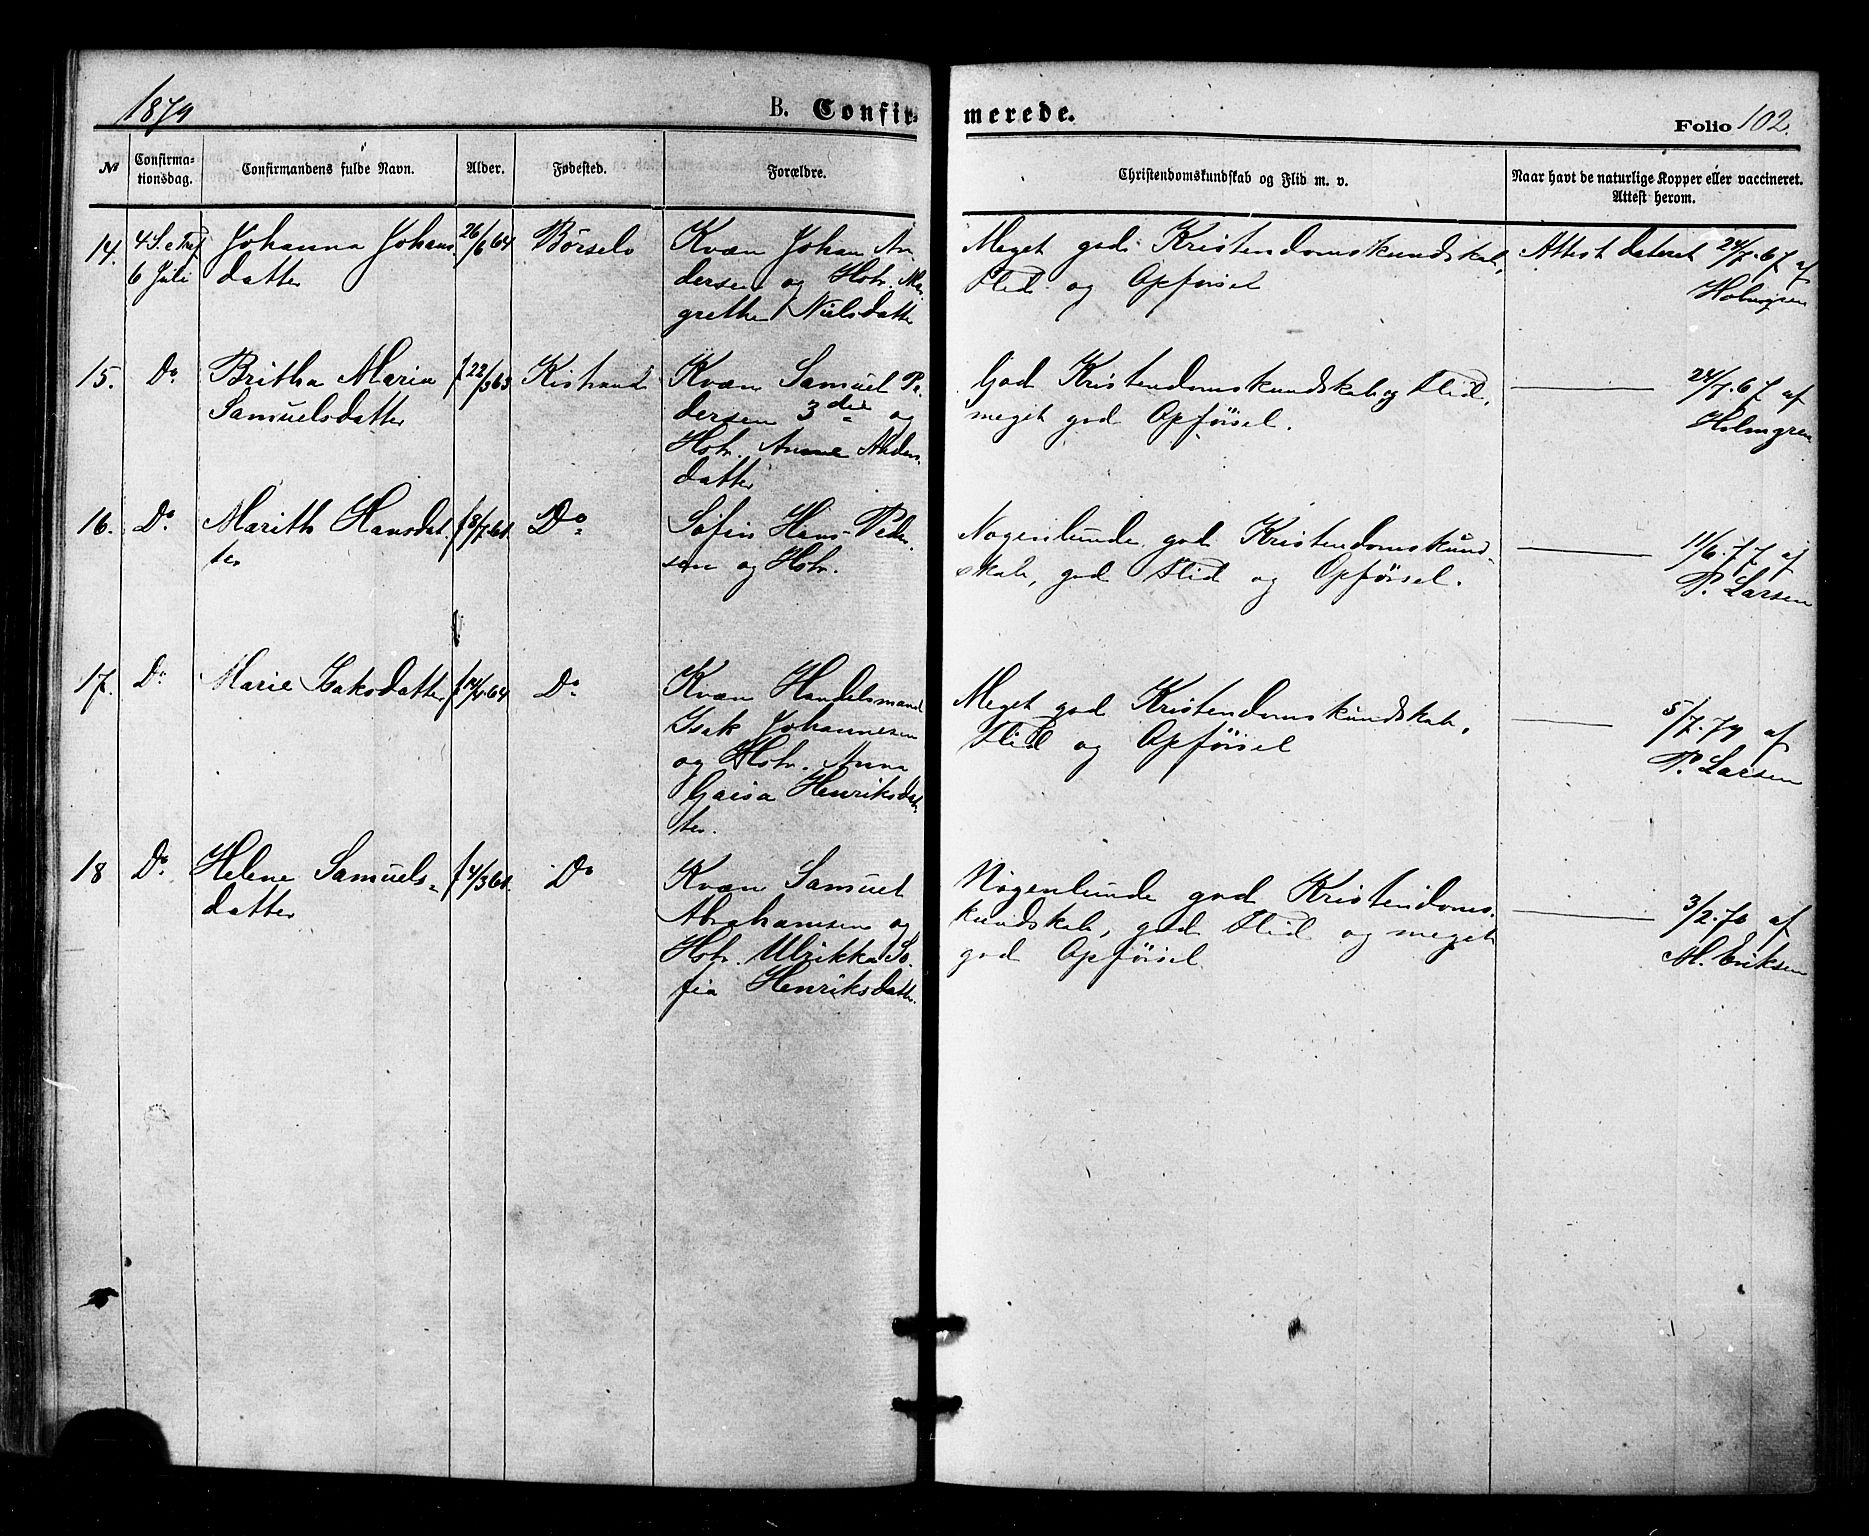 1879
B. Confir-
merede.
Folio 102.
№
Confirma-
tionsdag.
Confirmandens fulde Navn.
Alder.
Fødested.
Forældre.
Christendomskundskab og Flid m. v.
Naar havt de naturlige Kopper eller vaccineret.
Attest herom.
14.
4 S. e Tref
6 Juli
Johanna Johans
datter
26/6 64
Børselv
Kvæn Johan An
dersen og Hstr. Mar
grethe Nielsdatter
Meget god Kristendomskundskab,
Flid og Opførsel
Attest dateret 24/7. 67 af
Holmgren
15.
Do.
Britha Maria
Samuelsdatter
f 22/3 63
Kistrand
Kvæn Samuel Pe
dersen 3die og
Hstr. Anne
datter
God Kristendomskundskab og Flid,
meget god Opførsel.
24/7. 67 af
Holmgren
16.
Do.
Marith Hansdat
ter
f 8/7 64.
Do.
Søfin Hans Peder
sen og Hstr.
Nogenlunde god Kristendomskund
skab, god Flid og Opførsel.
11/6. 77 af
P. Larsen
17.
Do.
Marie Isaksdatter
64
Do.
Kvæn Handelsmand
Isak Johannesen
og Hstr. Anna
Gaisa Henriksdat
ter.
Meget god Kristendomskundskab,
Flid og Opførsel
5/7. 79 af
P. Larsen
18
Do.
Helene Samuels
datter
f 4/3 64.
Do
Kvæn Samuel
Abrahamsen og
Hstr. Ulrikka So
fia Henriksdatter.
Nogenlunde god Kristendoms
kundskab, god Flid og meget
god Opførsel
3/2. 70 af
M. Eriksen